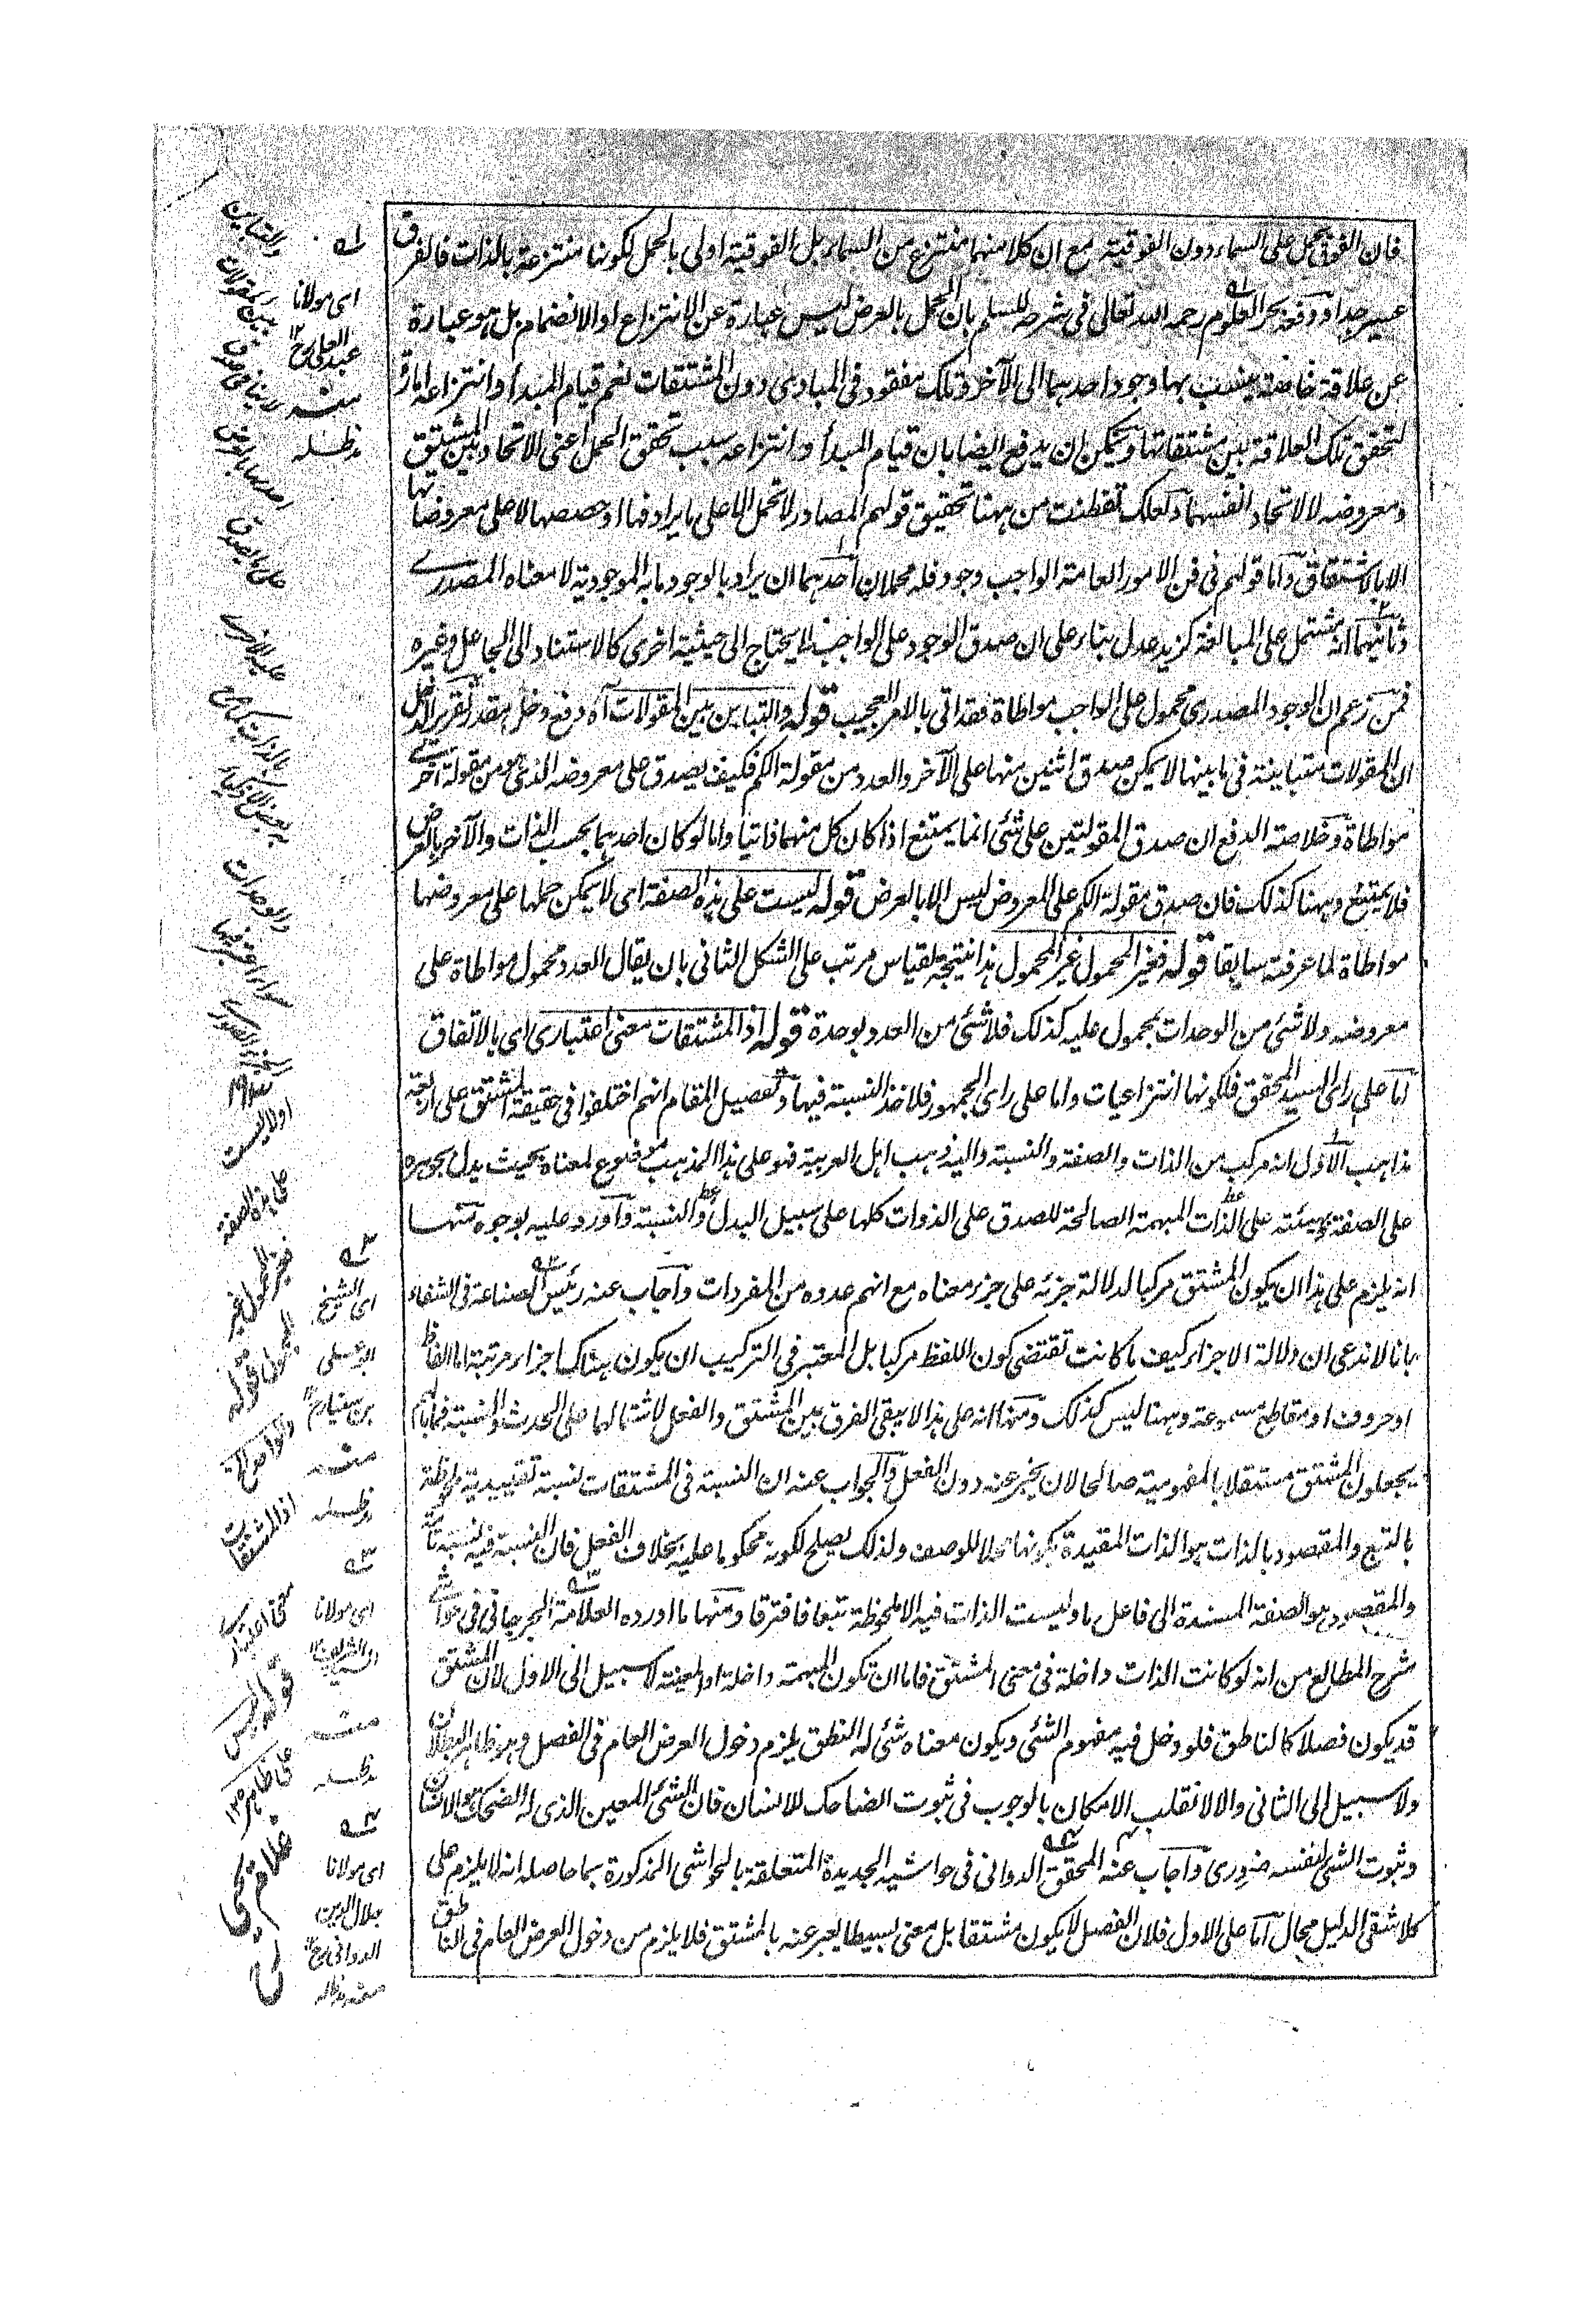 فان الفوق يحمل على السماء دون الفوقية مع ان كلا منهما منتزع من السماء بل الفوقية اولى بالحمل لكونها منتزعة بالذات فالفرق
عسير جدا ودفعه بحر العلوم رحمه الله تعالى في شرحه للسلم بان الحمل بالعرض ليس عبارة عن الانتزاع او الانضمام بل هو عبارة
عن علاقة خاصة ينسب بها وجود احدهما الى الآخر وتلك مفقود في المبادى دون المشتقات نعم قيام المبدأ وانتزاعه امارة
لتحقق تلك العلاقة بين مشتقاتها ويمكن ان يدفع ايضا بان قيام المبدأ وانتزاعه سبب تحقق الحمل اعنى الاتحاد بين المشتق
ومعروضه لا لاتحاد انفسهما ولعلك تفطنت من ههنا تحقيق قولهم المصادر لا تحمل الا على ما يرادفها او حصصها لا على معروضاتها
الا بالاشتقاق واما قولهم في فن الامور العامة الواجب وجود فله محملان احدهما ان يراد بالوجود ما به الموجودية لا معناه المصدرے
وثانيهما انه مشتمل على المبالغة كزيد عدل بناء على ان صدق الوجود على الواجب لا يحتاج الى حيثية اخرى كالاستناد الى الجاعل وغيره
فمن زعم ان الوجود المصدرى محمول على الواجب مواطاة فقد اتى بالامر العجيب قوله والتباين بين المقولات آه دفع دخل مقدر تقرير الدخل
ان المقولات متباينة في ما بينها لا يمكن صدق اثنين منها على الآخر والعدد من مقولة الكم فكيف يصدق على معروضه الذى هو من مقولة اخرے
مواطاة وخلاصة الدفع ان صدق المقولتين على شئ انما يمتنع اذا كان كل منهما ذاتيا واما لو كان احدهما بحسب الذات والآخر بالعرض
فلا يمتنع وههنا كذلك فان صدق مقولة الكم على المعروض ليس الا بالعرض قوله ليست على هذه الصفة اى لا يمكن حملها على معروضها
مواطاة لما عرفته سابقا قوله فخير المحمول غير المحمول هذا نتيجة لقياس مرتب على الشكل الثانى بان يقال العدد محمول مواطاة على
معروضه ولا شئ من الوحدات بمحمول عليه كذلك فلا شئ من العدد بوحدة قوله اذ المشتقات معنى اعتبارى اى بالاتفاق
اما على راى السيد المحقق فلكونها انتزاعيات واما على راى الجمهور فلاخذ النسبة فيها وتفصيل المقام انهم اختلفوا في حقيقة المشتق على اربعة
مذاهب الاول انه مركب من الذات والصفة والنسبة واليه ذهب اهل العربية فهو على هذا المذهب موضوع لمعناه بحيث يدل بجوهره
على الصفة وبهيئته على الذات المبهمة الصالحة للصدق على الذوات كلها على سبيل البدل والنسبة واورد عليه بوجوه منها
انه يلزم على هذا ان يكون المشتق مركبا لدلالة جزئه على جزء معناه مع انهم عدوه من المفردات واجاب عنه رئيس الصناعة في الشفاء
بانا لا ندعى ان دلالة الاجزاء كيف ما كانت تقتضى كون اللفظ مركبا بل المعتبر في التركيب ان يكون هناك اجزاء مرتبة اما الفاظ
او حروف او مقاطع مسموعة وههنا ليس كذلك ومنها انه على هذا لا يبقى الفرق بين المشتق والفعل لاشتمالهما على الحدث والنسبة فما بالهم
يجعلون المشتق مستقلا بالمفهومية صالحا لان يخبر عنه دون الفعل والجواب عنه ان النسبة في المشتقات نسبة تقييدية ملحوظة
بالتبع والمقصود بالذات هو الذات المقيدة بكونها محلا للوصف ولذلك يصلح لكونه محكوما عليه بخلاف الفعل فان النسبة فيه نسبة تامة
والمقصود هو الصفة المسندة الى فاعل ما وليست الذات فيه الا ملحوظة تبعا فافترقا ومنها ما اورده العلامة الجرجانى في حواشے
شرح المطالع من انه لو كانت الذات داخلة في معنى المشتق فاما ان تكون المبهمة داخلة او المعينة لا سبيل الى الاول لان المشتق
قد يكون فصلا كالناطق فلو دخل فيه مفهوم الشئ ويكون معناه شئ له النطق يلزم دخول العرض العام في الفصل وهو ظاهر البطلان
ولا سبيل الى الثانى والا لانقلب الامكان بالوجوب في ثبوت الضاحك للانسان فان الشئ المعين الذى له الضحك هو الانسان
وثبوت الشئ لنفسه ضرورى واجاب عنه المحقق الدوانى في حواشيه الجديدة المتعلقة بالحواشى المذكورة بما حاصله انه لا يلزم على
كلا شقى الدليل محال اما على الاول فلان الفصل لا يكون مشتقا بل معنى بسيطا يعبر عنه بالمشتق فلا يلزم من دخول العرض العام في الناطق
اى مولانا
عبد العلى رح
منه
مدظله
والتباين
بين المقولات
لا ينافى صدق
احدهما بالعرض
والوحدات
اولا ليست
على هذه الصفة
فخير المحمول غير
المحمول قوله
اذ المشتقات
معنى اعتبارى
قوله ليس
على ظاهره ١٢
غلام يحيى
اى الشيخ
ابو على
بن سينا رح
منه
مدظله
اى مولانا
السيد الشريف
منه
مدظله
اى مولانا
جلال الدين
الدوانى رح
منه مدظله